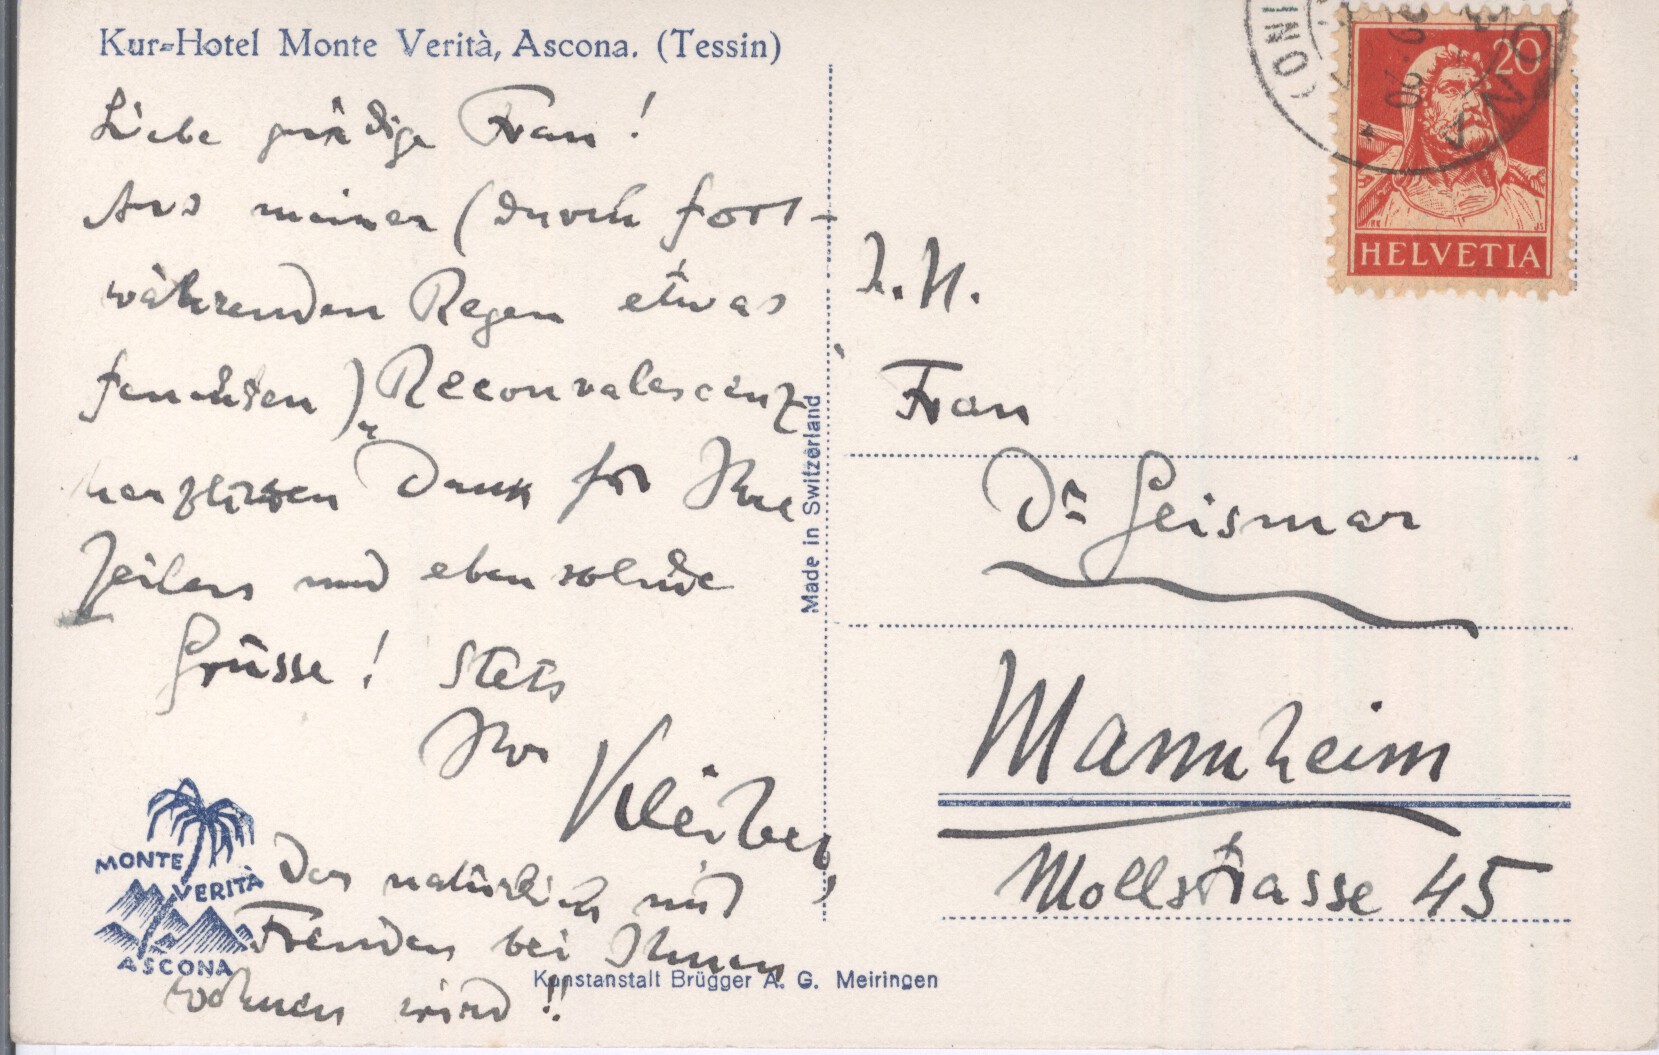 Kur-Hotel Monte Verità, Ascona. (Tessin)
Liebe gnädige Frau!
Aus meiner (durch fort-
währenden Regen etwas
feuchten) Reconvalescenz
herzlichen Dank für Ihre
Zeilen und ebensolche
Grüsse! Stets
Ihr
Kleiber,
Der natürlich mit
Freuden bei Ihnen
wohnen wird!!
MONTE
VERITÀ
ASCONA
Made in Switzerland
Kunstanstalt Brügger A. G. Meiringen
20
HELVETIA
H.
Frau
Dr Geismar
Mannheim
Mollstrasse 45